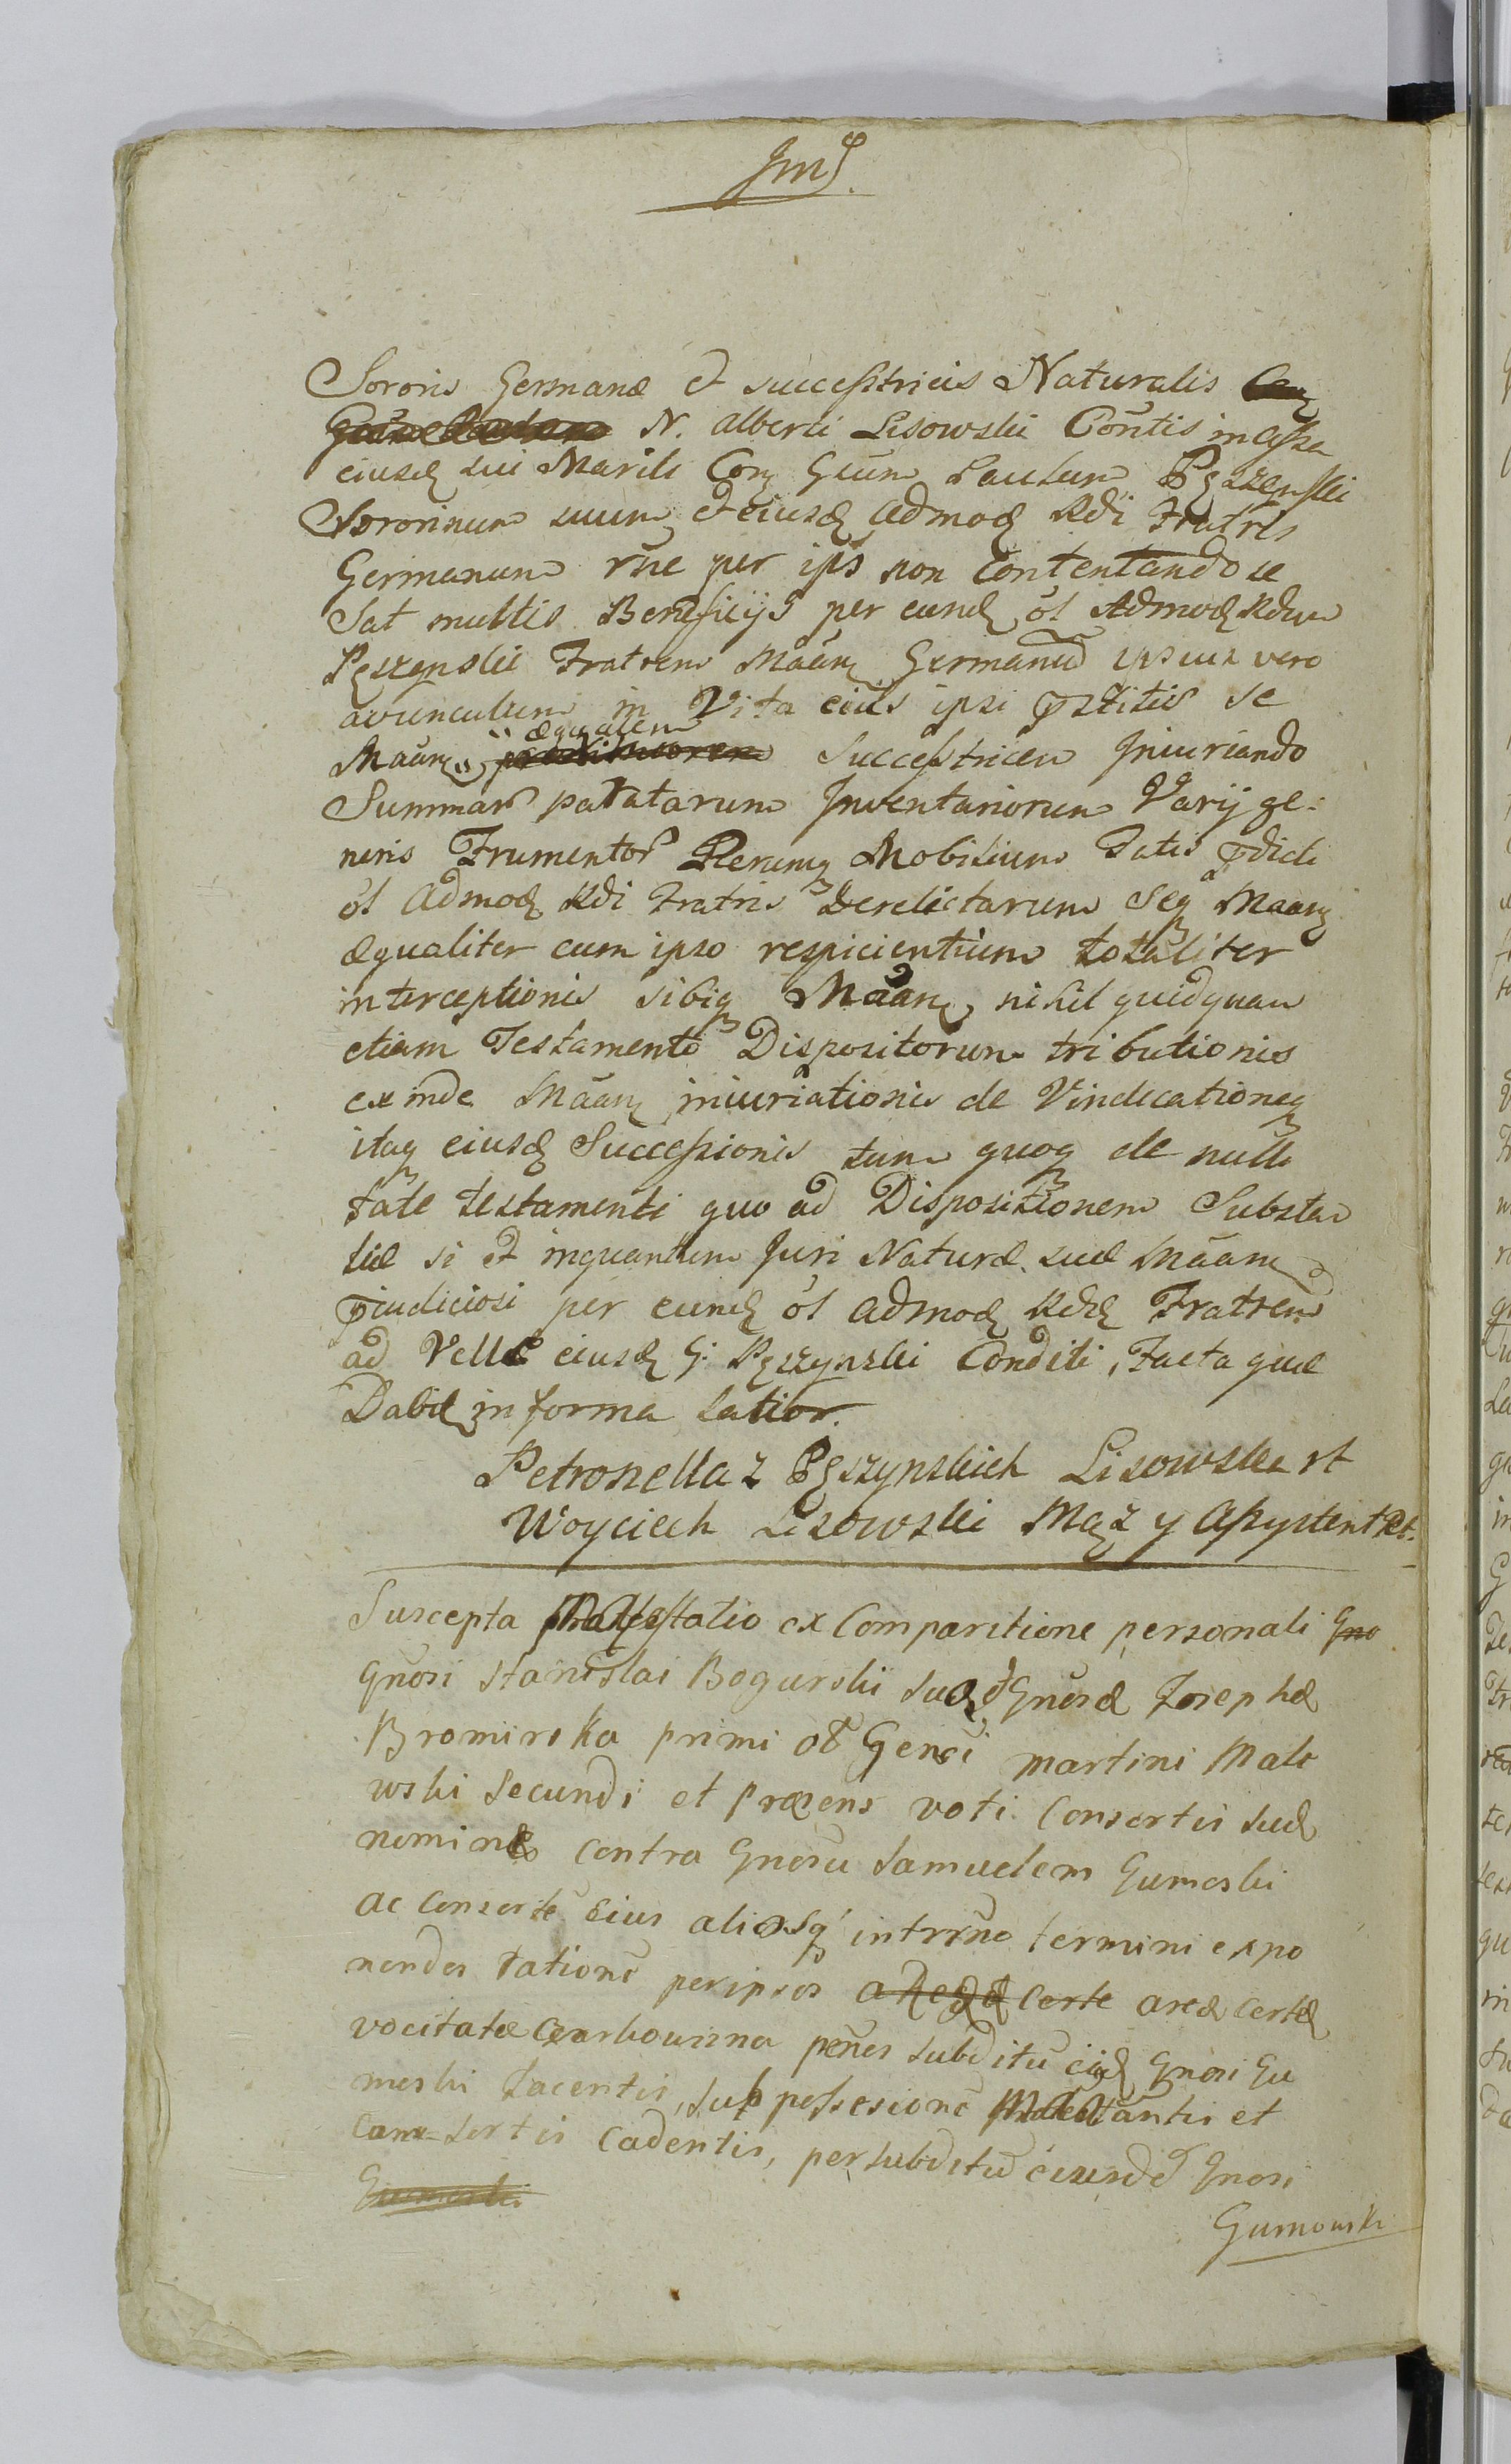 Sororis Germanæ et successtricis Naturalis
N. Alberti Lisowski Cõntis in Assa
eiusdꝫ sui Mariti Conꝫ Gsum Paulum Pęszenski
Sororinum suum et eiusdꝫ Admodꝫ Rdi Fratris
Germanum rñe per ips non Contentando se
Sat multis Beneficijs per eundꝫ ol Admodꝫ Rdum
Pęszenski Fratrem Mãanꝫ Germanũ ipsius vero
avunculum in Vita eius ipsi pstitis se
Mãanꝫ æqualem Successtricem Iniuriando
Summar palatarum Inventariorum Varij ge:
neris Frumentor Rerumqꝫ Mobilium Fatis pdicti
ol Admodꝫ Rdi Fratris Derelictarum Seqꝫ Maanꝫ
æqualiter cum ipso respicientium totaliter
interceptionis sibiqꝫ Mãanꝫ nihil quidquam
etiam Testamento Dispositorum tributionis
exinde Mãanꝫ iniuriationis de Vindicationeqꝫ
itaqꝫ eiusdꝫ Successionis tum quoqꝫ de nulli
tate testamenti quo ad Dispositionem Substan
tiæ si et inquantum Juri Naturæ suæ Mãanꝫ
piudiciosi per eundꝫ ol Admodꝫ Rdꝫ Fratrem
ad Velle eiusdꝫ G: Pęszynski Conditi, Facta quæ
Dabitꝫ in forma latior.
Petronella z Pęszynskich Lisowska rt
Woyciech Lisowski Mąz y Assystent Rt.
Suscepta Protestatio ex Comparitione personali Gno
Gnosi Stanislai Bogurski suo et Gnosæ Josephæ
Bromirska primi ol Gensi Martini Male
wski Secundi et præsens voti Consortis suæ
nomine contra Gnosũ Samuelem Gumoski
ac Consortẽ Eius aliosqꝫ intrrño termini expo
nendos rationẽ per ipsos certe areæ certæ
vocitatæ penes subditũ eijdꝫ Gnosi Gu
moski Jacentis, sub possesionẽ Protestantis et
Con-sortis Cadentis, per subditũ eiusdẽ Gnosi
Gumowski